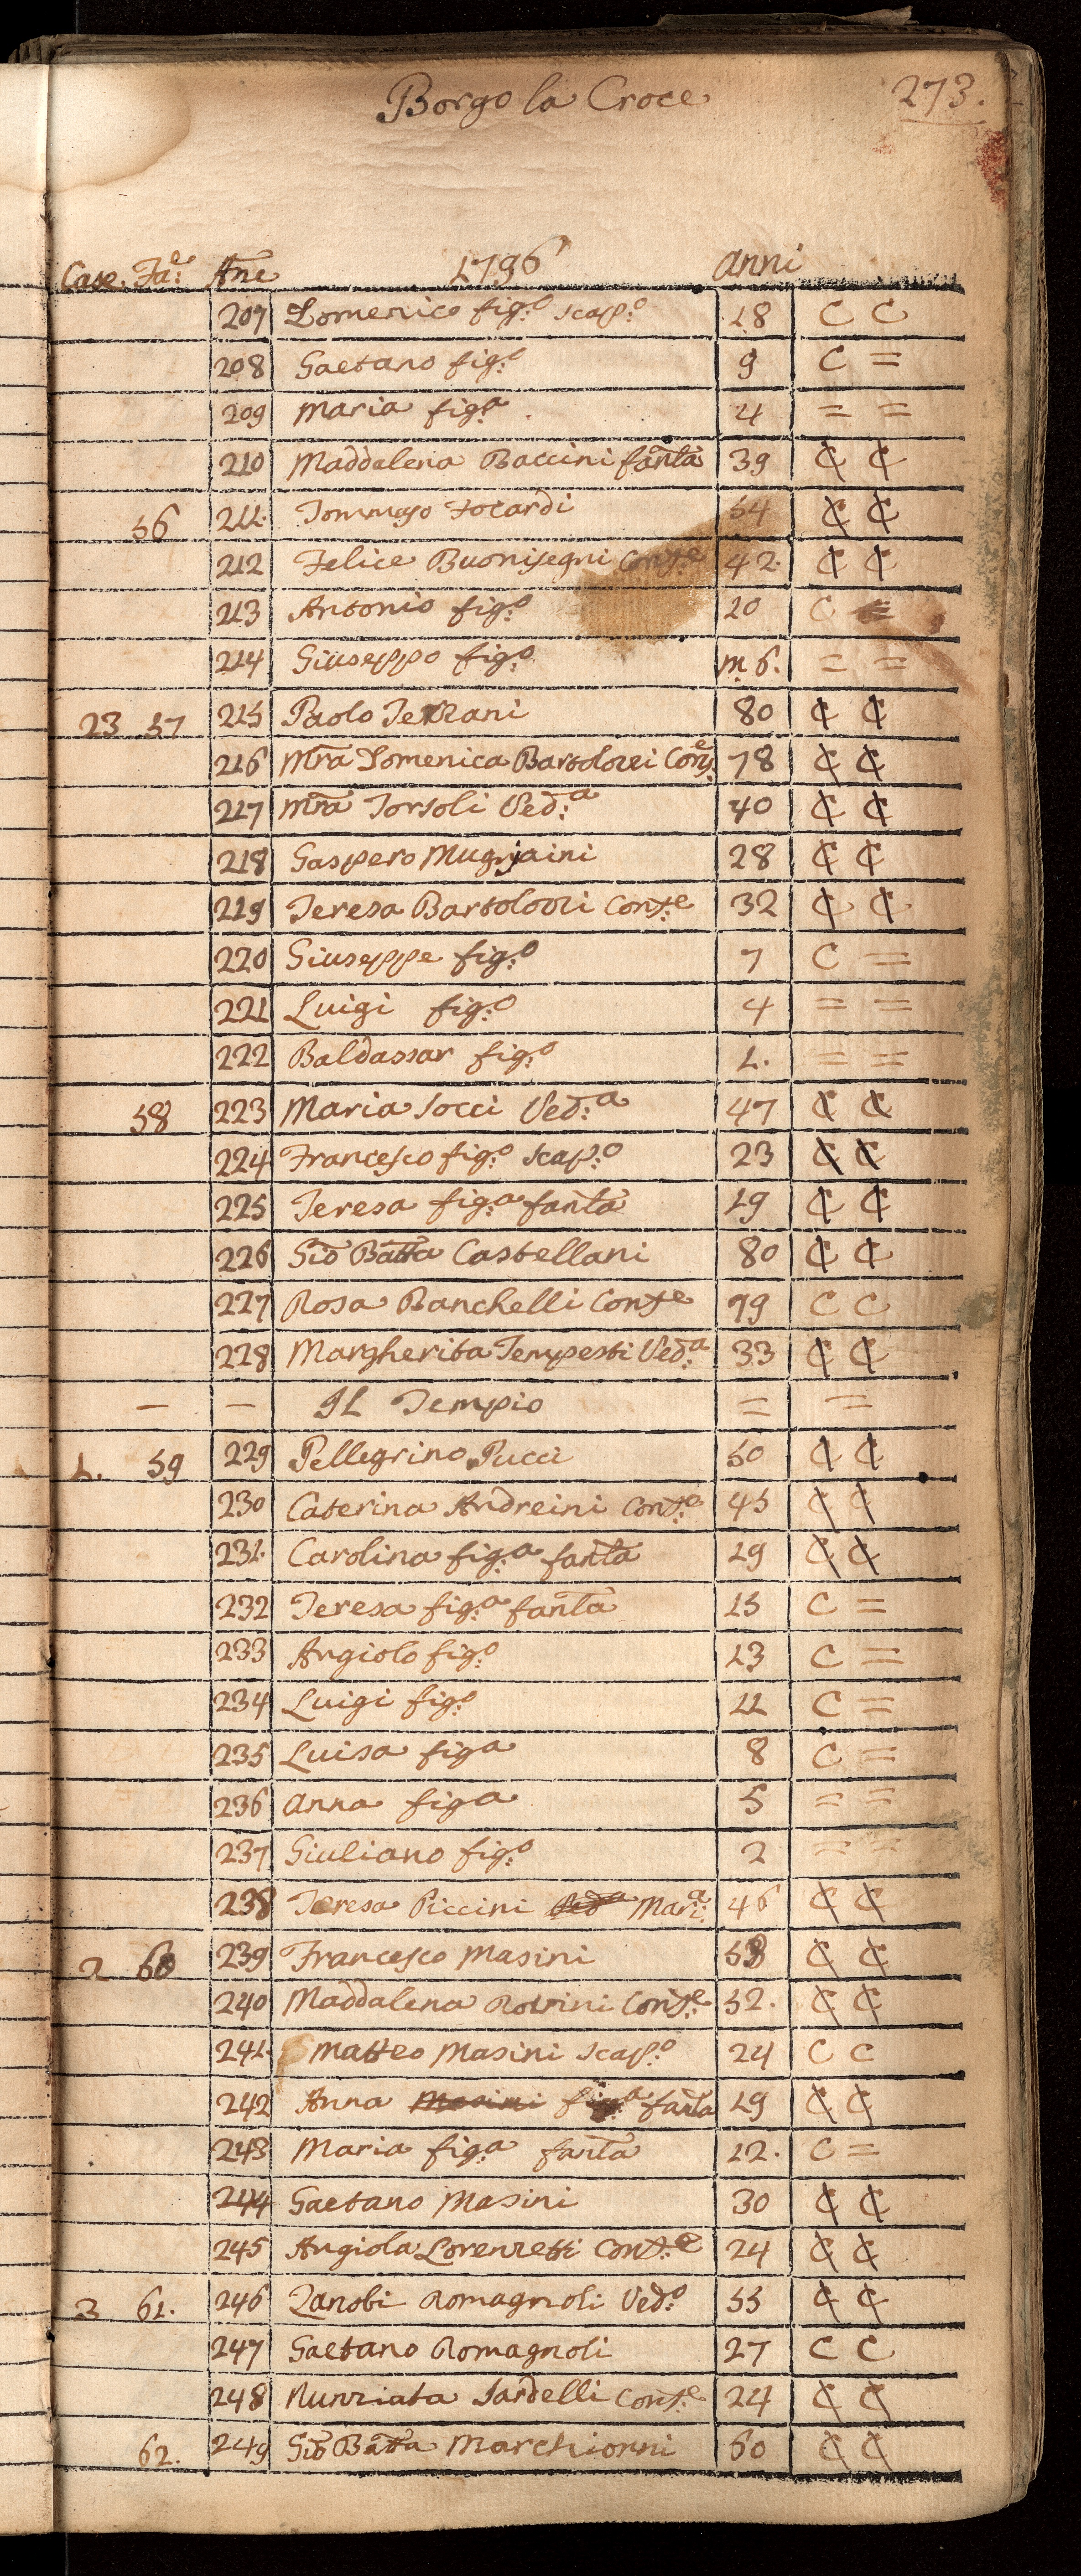 Borgo la Croce 273.
Case. Fa:e Ane 1796 anni
207 Domenico fig:o scap:o 18 C C
208 Gaetano fig:o 9 C =
209 Maria fig:a 4 = =
210 Maddalena Baccini fanta 39 ₵ ₵
56 211. Tommaso Focardi 54 ₵ ₵
212 Felice Buonisegni Cons:e 42. ₵ ₵
213 Antonio fig:o 10 C =
214 Giuseppo fig:o m 6. = =
23 57 215 Paolo Terzani 80 ₵ ₵
216 Mra Domenica Bartolozzi Cons:e 78 ₵ ₵
217 Mra Torsoli Ved:a 40 ₵ ₵
218 Gaspero Mugniaini 28 ₵ ₵
219 Teresa Bartolozzi Cons:e 32 ₵ ₵
220 Giuseppe fig:o 7 C =
221 Luigi fig:o 4 = =
222 Baldassar fig:o 1. = =
58 223 Maria Socci Ved:a 47 ₵ ₵
224 Francesco fig:o scap:o 23 ₵ ₵
225 Teresa fig:a fanta 19 ₵ ₵
226 Gio Batta Castellani 80 ₵ ₵
227 Rosa Banchelli Conse 79 C C
228 Margherita Tempesti Ved:a 33 ₵ ₵
— — IL Tempio = =
1. 59 229 Pellegrino Pucci 50 ₵ ₵
230 Caterina Andreini Cons:e 45 ₵ ₵
231. Carolina fig:a fanta 19 ₵ ₵
232 Teresa fig:a fanta 15 C =
233 Angiolo fig:o 13 C =
234 Luigi fig:o 11 C =
235 Luisa figa 8 C =
236 Anna figa 5 = =
237 Giuliano fig:o 2 = =
238 Teresa Piccini Ved:a Mari:a 46 ₵ ₵
2 60 239 Francesco Masini 58 ₵ ₵
240 Maddalena Rossini Cons:e 52. ₵ ₵
241. Matteo Masini scap:o 24 C C
242 Anna Masini fig:a fanta 19 ₵ ₵
243 Maria fig:a fanta 12. C =
244 Gaetano Masini 30 ₵ ₵
245 Angiola Lorenzetti Cons:e 24 ₵ ₵
3 61. 246 Zanobi Romagnoli Ved:o 55 ₵ ₵
247 Gaetano Romagnoli 27 C C
248 Nunziata Sardelli Cons:e 24 ₵ ₵
62. 249 Gio Batta Marchionni 60 ₵ ₵